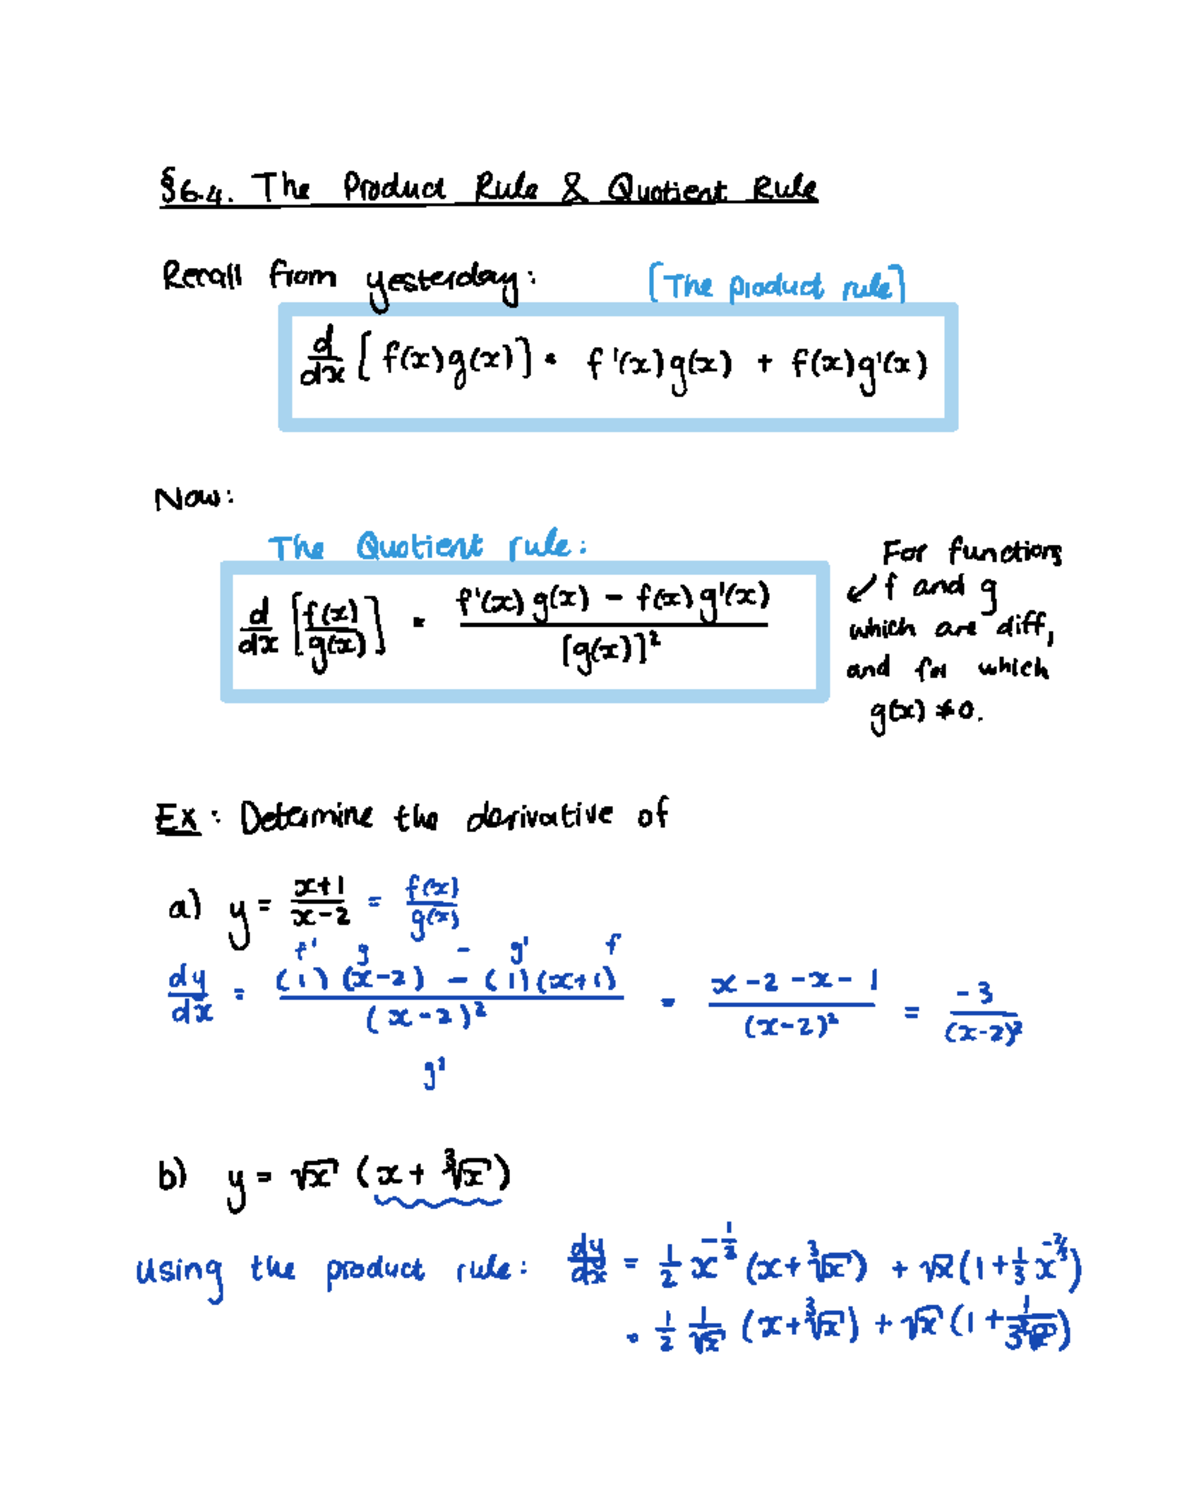 §6.4. The Product Rule & Quotient Rule
Recall from yesterday: [The product rule]
d/dx [f(x)g(x)] = f'(x)g(x) + f(x)g'(x)
Now:
The Quotient rule:
d/dx [f(x)/g(x)] = (f'(x)g(x) - f(x)g'(x)) / [g(x)]²
For functions
↙ f and g
which are diff,
and for which
g(x) ≠ 0.
Ex: Determine the derivative of
a) y = (x+1)/(x-2) = f(x)/g(x)
f' g - g' f
dy/dx = ((1)(x-2) - (1)(x+1)) / (x-2)² = (x-2-x-1)/(x-2)² = -3/(x-2)²
g²
b) y = √x (x + ∛x)
Using the product rule: dy/dx = 1/2 x^(-1/2) (x+∛x) + √x (1 + 1/3 x^(-2/3))
= 1/2 1/√x (x+∛x) + √x (1 + 1/(3∛x²))